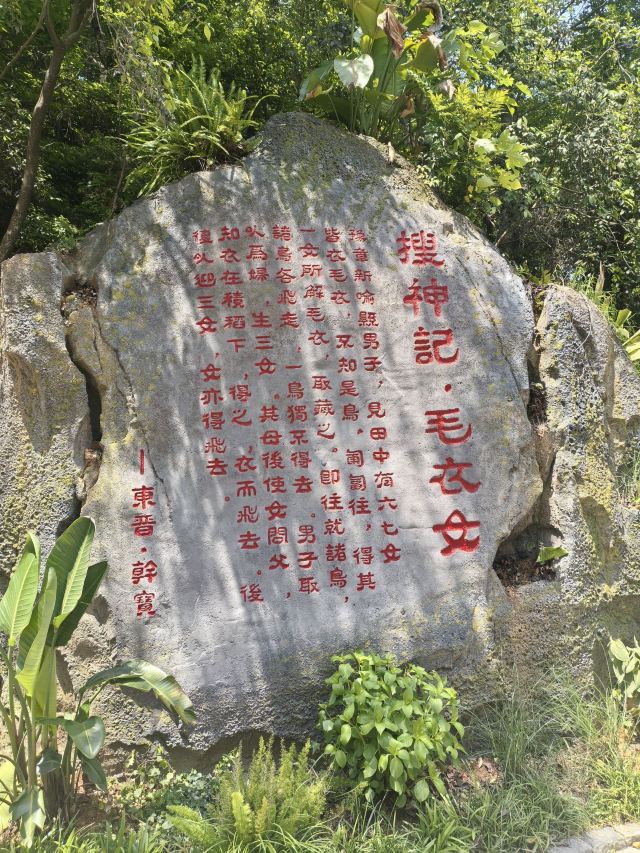 搜神記·毛衣女
豫章新喻縣男子，見田中有六七女
皆衣毛衣，不知是鳥。匍匐往，得其
一女所解毛衣，取藏之。即往就諸鳥，
諸鳥各飛走，一鳥獨不得去。男子取
以爲婦，生三女。其母後使女問父，
知衣在積稻下，得之，衣而飛去。後
復以迎三女，女亦得飛去。
—東晉·幹寶